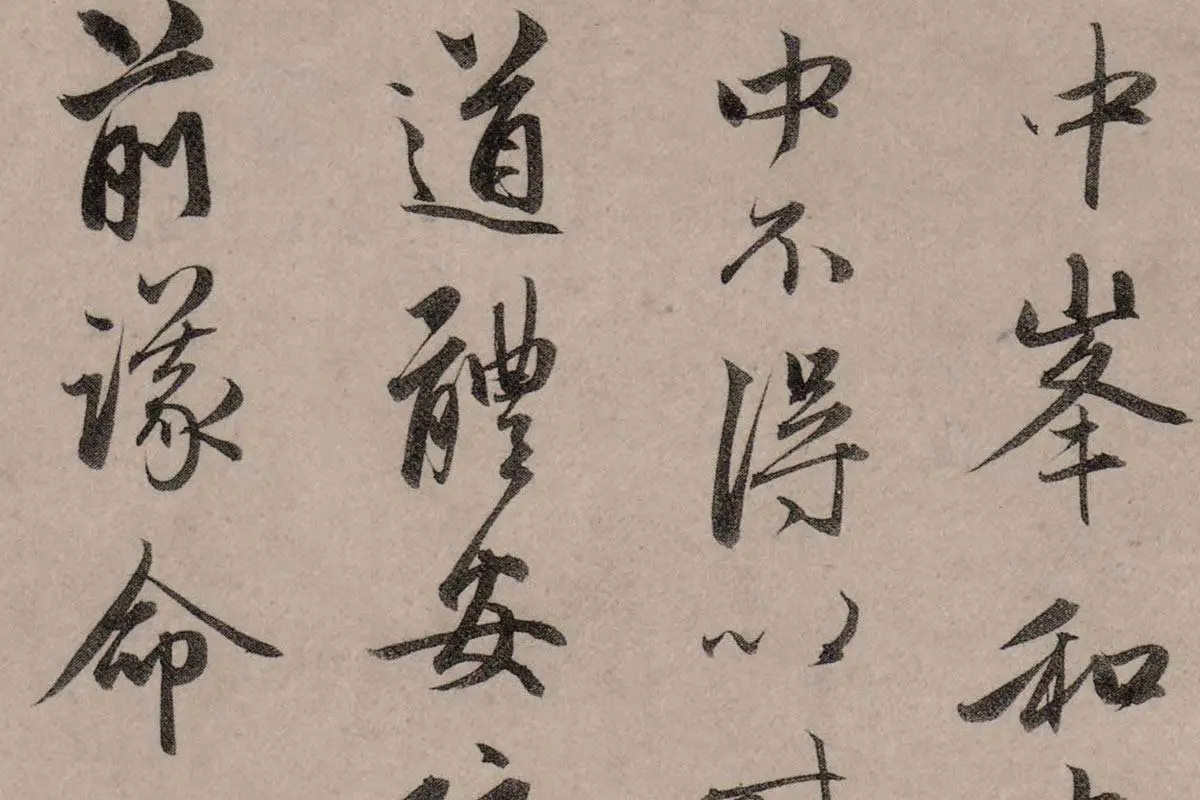 中峯和
中不得以
道體安
前蒙命